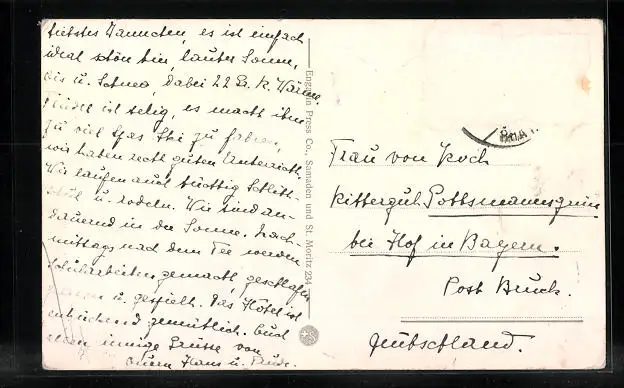 liebstes Hannchen, es ist einfach
ideal schön hier, lauter Sonne,
Eis u. Schnee, dabei 22 Gr. R. Wärme.
ist selig, es macht ihm
zu viel Spas Ski zu fahren,
wir haben recht guten Unterricht.
Wir laufen auch tüchtig Schlitt-
schuh u. rodeln. Wir sind an-
dauernd in der Sonne. Nach-
mittags nach dem Tee werden
Schularbeiten gemacht, geschlafen
u. gespielt. Das Hotel ist
entzückend gemütlich. Euch
allen innige Grüsse von
Euern Hans u.
Engadin Press Co., Samaden und St. Moritz 234
Frau von Koch
Rittergut Gottsmannsgrün
bei Hof in Bayern.
Post Bruck.
Deutschland.